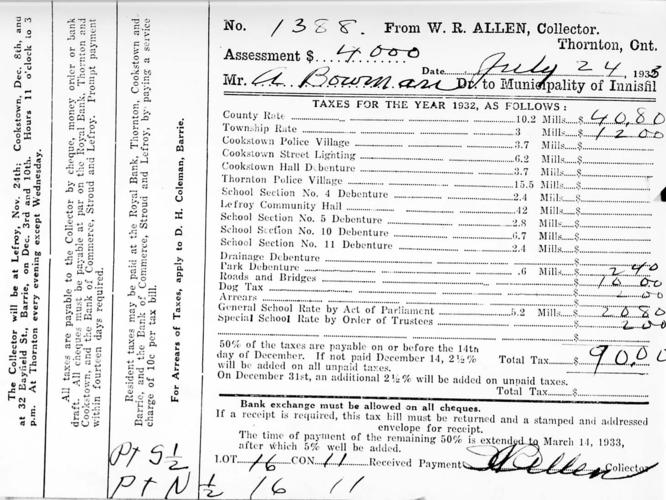 The Collector will be at Lefroy, Nov. 24th; Cookstown, Dec. 8th, and
at 32 Bayfield St., Barrie, on Dec. 3rd and 10th. Hours 11 o'clock to 3
p.m. At Thornton every evening except Wednesday.
All taxes are payable to the Collector by cheque, money order or bank
draft. All cheques must be payable at par on the Royal Bank, Thornton and
Cookstown, and the Bank of Commerce, Stroud and Lefroy. Prompt payment
within fourteen days required.
Resident taxes may be paid at the Royal Bank, Thornton, Cookstown and
Barrie, and the Bank of Commerce, Stroud and Lefroy, by paying a service
charge of 10c per tax bill.
For Arrears of Taxes, apply to D. H. Coleman, Barrie.
No. 1388. From W. R. ALLEN, Collector.
Thornton, Ont.
Assessment $ 4.000
Date July 24, 1933
Mr. A. Bowman Dr. to Municipality of Innisfil
TAXES FOR THE YEAR 1932, AS FOLLOWS:
County Rate 10.2 Mills $ 40.80
Township Rate 3 Mills $ 12.00
Cookstown Police Village 3.7 Mills $
Cookstown Street Lighting 6.2 Mills $
Cookstown Hall Debenture 3.7 Mills $
Thornton Police Village 15.5 Mills $
School Section No. 4 Debenture 2.4 Mills $
Lefroy Community Hall .42 Mills $
School Section No. 5 Debenture 2.8 Mills $
School Section No. 10 Debenture 6.7 Mills $
School Section No. 11 Debenture 2.4 Mills $
Drainage Debenture $
Park Debenture .6 Mills $ 2 40
Roads and Bridges $ 10 00
Dog Tax $ 2 00
Arrears $
General School Rate by Act of Parliament 5.2 Mills $ 20 80
Special School Rate by Order of Trustees $ 2 00
50% of the taxes are payable on or before the 14th
day of December. If not paid December 14, 2½%
will be added on all unpaid taxes. Total Tax $ 90.00
On December 31st, an additional 2½% will be added on unpaid taxes.
Total Tax $
Bank exchange must be allowed on all cheques.
If a receipt is required, this tax bill must be returned and a stamped and addressed
envelope for receipt.
The time of payment of the remaining 50% is extended to March 14, 1933,
after which 5% will be added.
Pt S ½
LOT 16 CON. 11 Received Payment Allen Collector
Pt N ½ 16 11